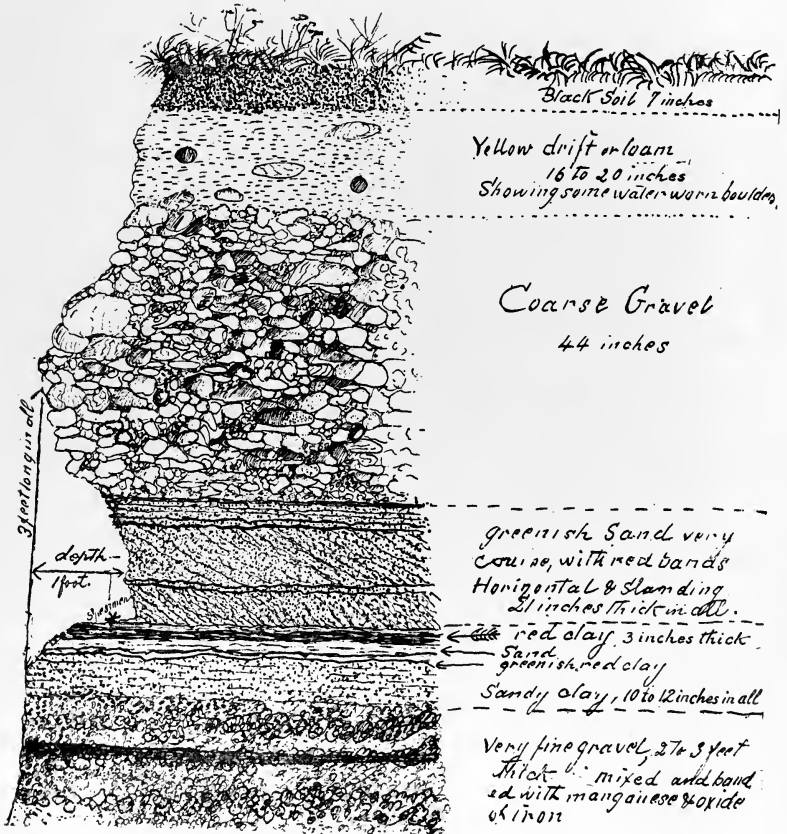 Black Soil 7 inches
Yellow drift or loam
16 to 20 inches
Showing some water worn boulders.
Coarse Gravel
44 inches
3 feet long in all
depth
1 foot.
specimen
greenish Sand very
course, with red bands
Horizontal & Slanding
21 inches thick in all.
red clay 3 inches thick
Sand
greenish red clay
Sandy clay, 10 to 12 inches in all
Very fine gravel, 2 to 3 feet
thick mixed and band
ed with manganese & oxide
of iron